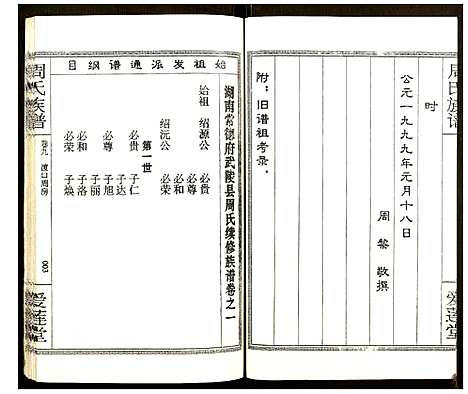 周氏族谱
时
公元一九九九年元月十八日
周 黎 敬撰
附：旧谱祖考录。
爱莲堂
始祖发派通谱纲目
湖南常德府武陵县周氏续修族谱卷之一
始祖 绍源公 必贵
必尊
绍沅公 必和
必荣
第一世
必贵 子仁
子达
必尊 子旭
子丽
必和 子洛
必荣 子焕
周氏族谱
卷九
渡口周房
003
爱莲堂